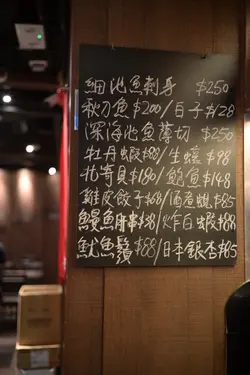 細池魚刺身 $250
秋刀魚$200/白子$128
深海池魚薄切 $250
牡丹蝦$88/生蠔$98
北寄貝$180/鮑魚$148
雞皮餃子$68/酒煮蜆$85
鰻魚肝串$88/炸白蝦$88
魷魚鬚$88/日本銀杏$85